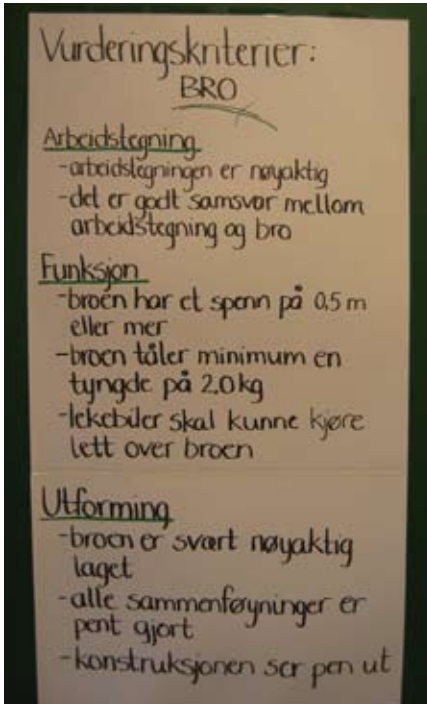 Vurderingskriterier:
BRO
Arbeidstegning
-arbeidstegningen er nøyaktig
-det er godt samsvar mellom
arbeidstegning og bro
Funksjon
-broen har et spenn på 0,5 m
eller mer
-broen tåler minimum en
tyngde på 2,0 kg
-lekebiler skal kunne kjøre
lett over broen
Utforming
-broen er svært nøyaktig
laget
-alle sammenføyninger er
pent gjort
-konstruksjonen ser pen ut